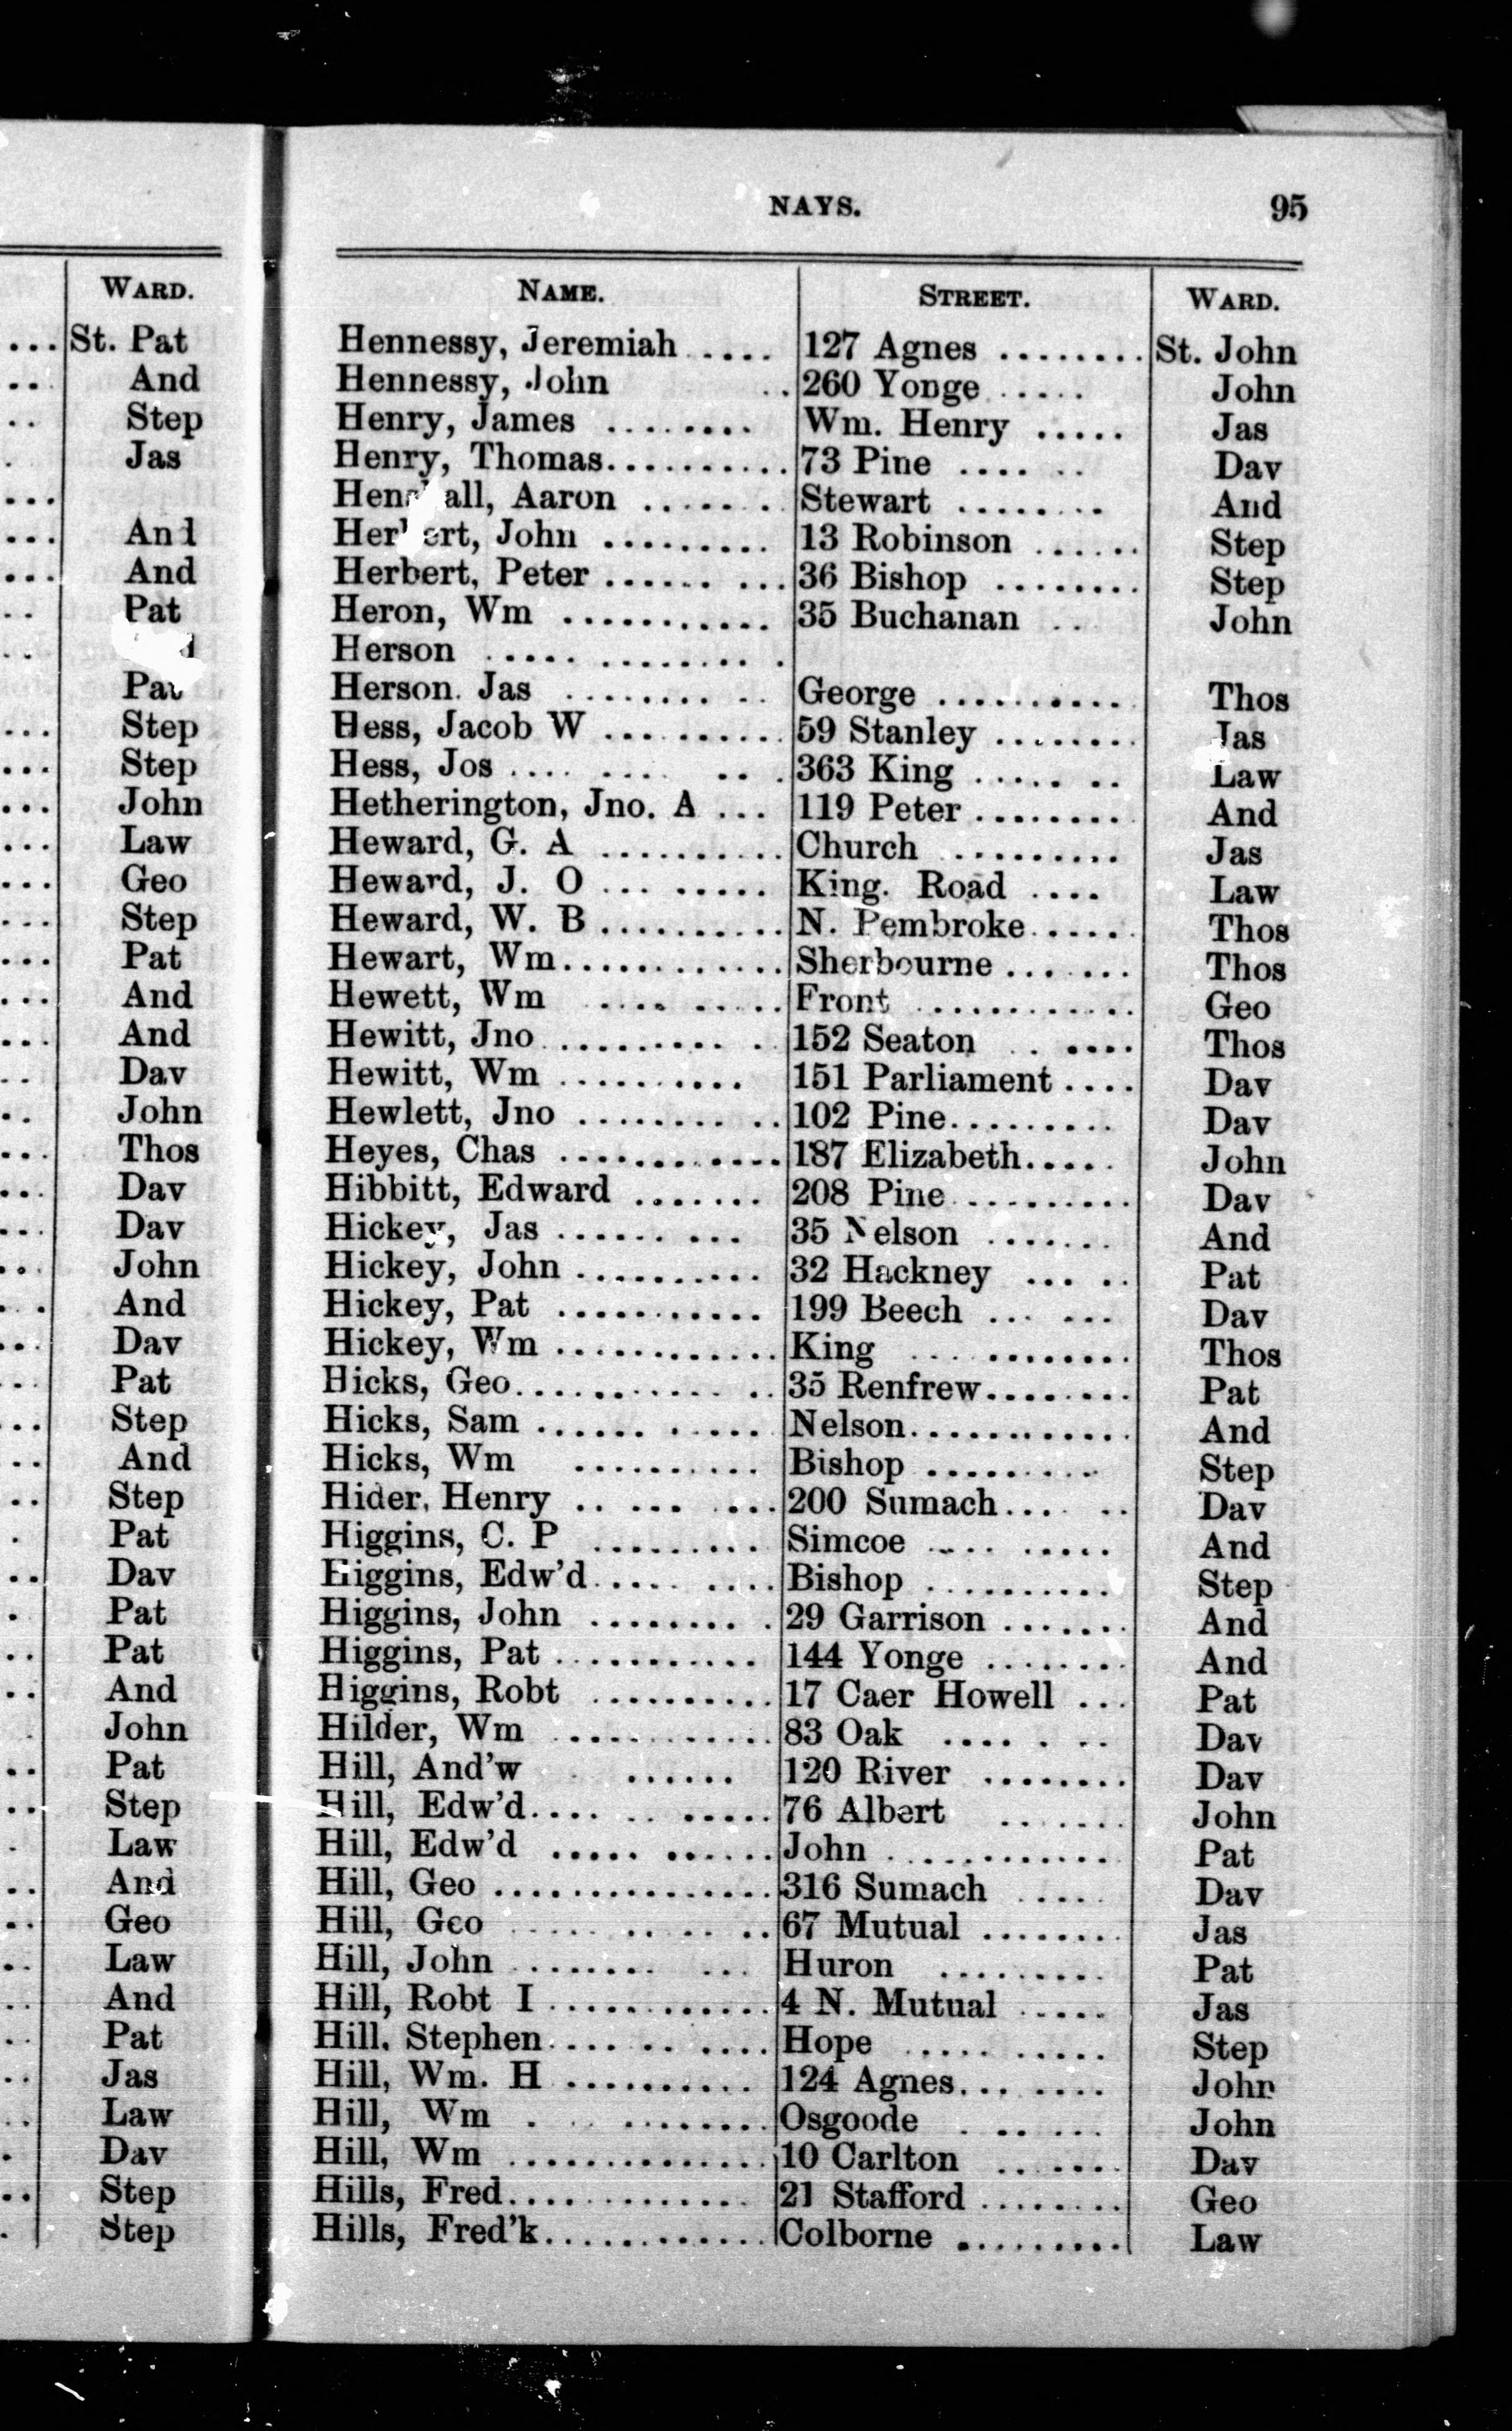 WARD.
St. Pat
And
Step
Jas
And
And
Pat
Pat
Step
Step
John
Law
Geo
Step
Pat
And
And
Dav
John
Thos
Dav
Dav
John
And
Dav
Pat
Step
And
Step
Pat
Dav
Pat
Pat
And
John
Pat
Step
Law
And
Geo
Law
And
Pat
Jas
Law
Dav
Step
Step
NAYS. 95
NAME. STREET. WARD.
Hennessy, Jeremiah ..... 127 Agnes ........ St. John
Hennessy, John .. 260 Yonge ..... John
Henry, James ........ Wm. Henry ..... Jas
Henry, Thomas.......... 73 Pine .... .. Dav
all, Aaron ....... Stewart ........ And
Herbert, John ......... 13 Robinson ...... Step
Herbert, Peter ...... ... 36 Bishop ........ Step
Heron, Wm ........... 35 Buchanan .. John
Herson ..... ........ .
Herson. Jas ........ .. George .......... Thos
Hess, Jacob W .......... 59 Stanley ........ Jas
Hess, Jos .... .... .. . 363 King ..... .. Law
Hetherington, Jno. A ... 119 Peter ........ And
Heward, G. A .......... Church ......... Jas
Heward, J. O ... ..... King. Road .... Law
Heward, W. B .......... N. Pembroke..... Thos
Hewart, Wm............ Sherbourne ....... Thos
Hewett, Wm .... ..... Front ............ Geo
Hewitt, Jno.......... . 152 Seaton . .... Thos
Hewitt, Wm .......... 151 Parliament .... Dav
Hewlett, Jno ......... .. 102 Pine......... Dav
Heyes, Chas ............ 187 Elizabeth..... John
Hibbitt, Edward ....... 208 Pine.......... Dav
Hickey, Jas ...... ... 35 Nelson ....... And
Hickey, John .......... 32 Hackney ... .. Pat
Hickey, Pat ........... 199 Beech ... ... Dav
Hickey, Wm ............ King .... ........ Thos
Hicks, Geo........... .. 35 Renfrew........ Pat
Hicks, Sam ...... ..... Nelson............ And
Hicks, Wm .......... Bishop ......... Step
Hider, Henry .. ... ... 200 Sumach.... .. Dav
Higgins, C. P ......... Simcoe .... ..... And
Higgins, Edw'd..... .... Bishop .......... Step
Higgins, John ........ . 29 Garrison ....... And
Higgins, Pat ........... 144 Yonge ........ And
Higgins, Robt .......... 17 Caer Howell ... Pat
Hilder, Wm ............ 83 Oak .... . .. Dav
Hill, And'w ...... 120 River ........ Dav
Hill, Edw'd.... .. ..... 76 Albert ....... John
Hill, Edw'd ..... ...... John ............ Pat
Hill, Geo ............... 316 Sumach ..... Dav
Hill, Geo .... .. .. .. 67 Mutual ........ Jas
Hill, John ....... ... Huron ......... Pat
Hill, Robt I............ 4 N. Mutual ..... Jas
Hill. Stephen.... .. .... Hope ..... ..... Step
Hill, Wm. H .......... 124 Agnes... .... John
Hill, Wm . ........ Osgoode . .. ... John
Hill, Wm .............. 10 Carlton ....... Dav
Hills, Fred............. 21 Stafford ........ Geo
Hills, Fred'k............ Colborne ......... Law